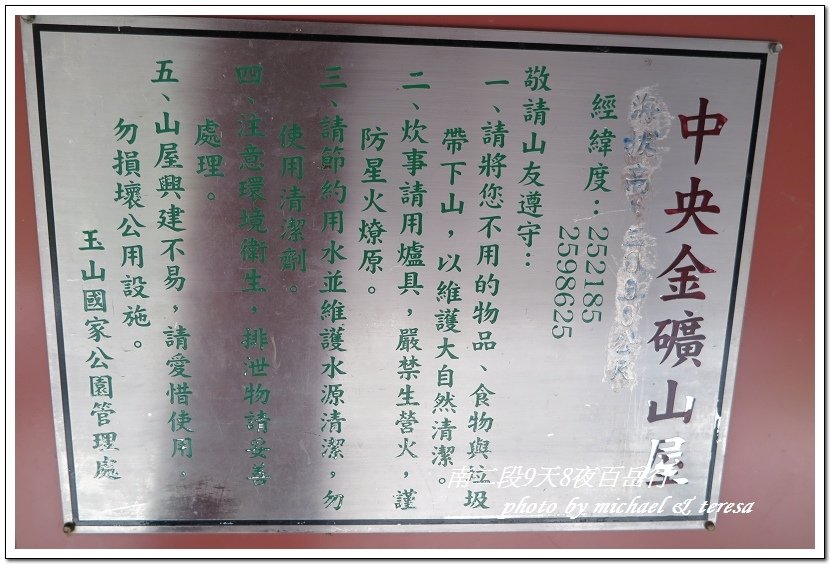 中央金礦山屋
海拔高
經緯度：252185
2598625
敬請山友遵守：
一、請將您不用的物品、食物與垃圾
帶下山，以維護大自然清潔。
二、炊事請用爐具，嚴禁生營火，謹
防星火燎原。
三、請節約用水並維護水源清潔，勿
使用清潔劑。
四、注意環境衛生，排泄物請妥善
處理。
五、山屋興建不易，請愛惜使用，
勿損壞公用設施。
玉山國家公園管理處
南二段9天8夜百岳行
photo by michael & teresa